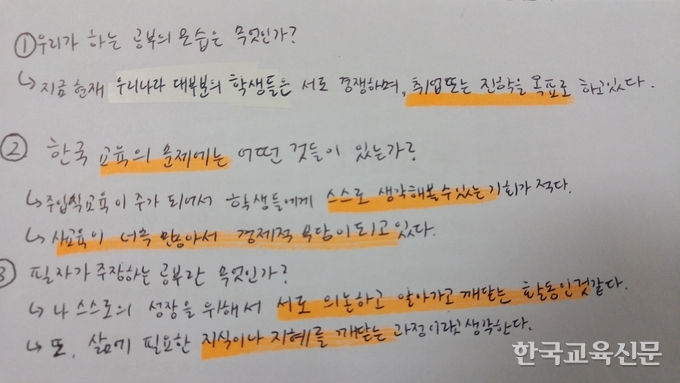 ①우리가 하는 공부의 모습은 무엇인가?
↳지금 현재 우리나라 대부분의 학생들은 서로 경쟁하며, 취업또는 진학을 목표로 하고있다.
② 한국 교육의 문제에는 어떤 것들이 있는가?
↳주입식교육이 주가 되어서 학생들에게 스스로 생각해볼 수 있는 기회가 적다.
↳사교육이 너속 많아서 경제적 부담이되고있다.
③ 필자가 주장하는 공부란 무엇인가?
↳나 스스로의 성장을 위해서 서로 의논하고 알아가고 깨닫는 활동인것같다.
↳또, 삶에 필요한 지식이나 지혜를 깨닫는 과정이라고생각한다.
한국교육신문